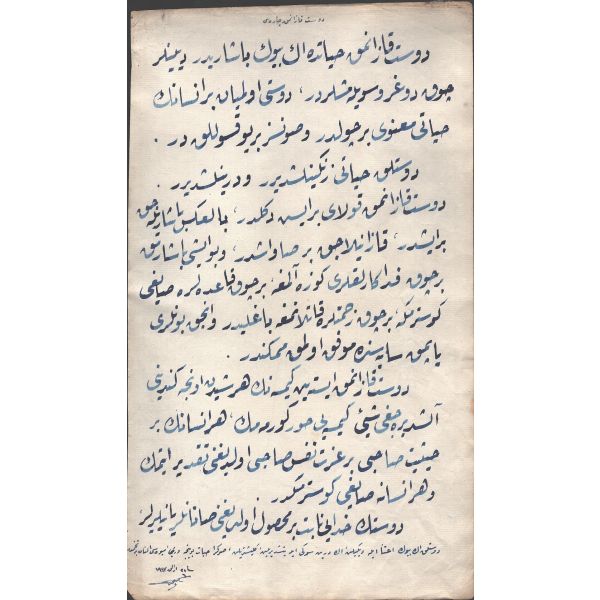 دوست قازانمق چاره‌سی
دوست قازانمق حیاتده اڭ بیوك باشاریدر دیینلر
چوق دوغرو سویله‌مشلردر، دوستی اولمیان بر انسانك
حیاتی معنوی بر چولدر و صونسز بر یوقسوللق در .
دوستلق حیاتی زنكینلشدیرر و درینلشدیرر .
دوست قازانمق قولای بر ایس دكلدر، بالعكس باشاریله‌جق
بر ایشدر، قازانیلاجق بر صاواشدر، و بو ایشی باشارمق
بر چوق فداكارلقلری كوزه آلمغه بر چوق قاعده‌لره صایغی
كوسترمكه بر چوق زحمتلره قاتلانمغه باغلیدر و انجق بونلری
یاپمق سایه‌سنده موفق اولمق ممكندر .
دوست قازانمق ایستیین كیمسه‌نك هر شیدن اونجه كندینی
آلشدیره‌جغی شیئ كیمسه‌یی خور كورمه‌مك، هر انسانك بر
حیثیت صاحبی بر عزت نفس صاحبی اولدیغنی تقدیر ایتمك
و هر انسانه صایغی كوسترمكدر .
دوستك خدایی نابت بر محصول اولدیغنی صانانلر یانیلیرلر